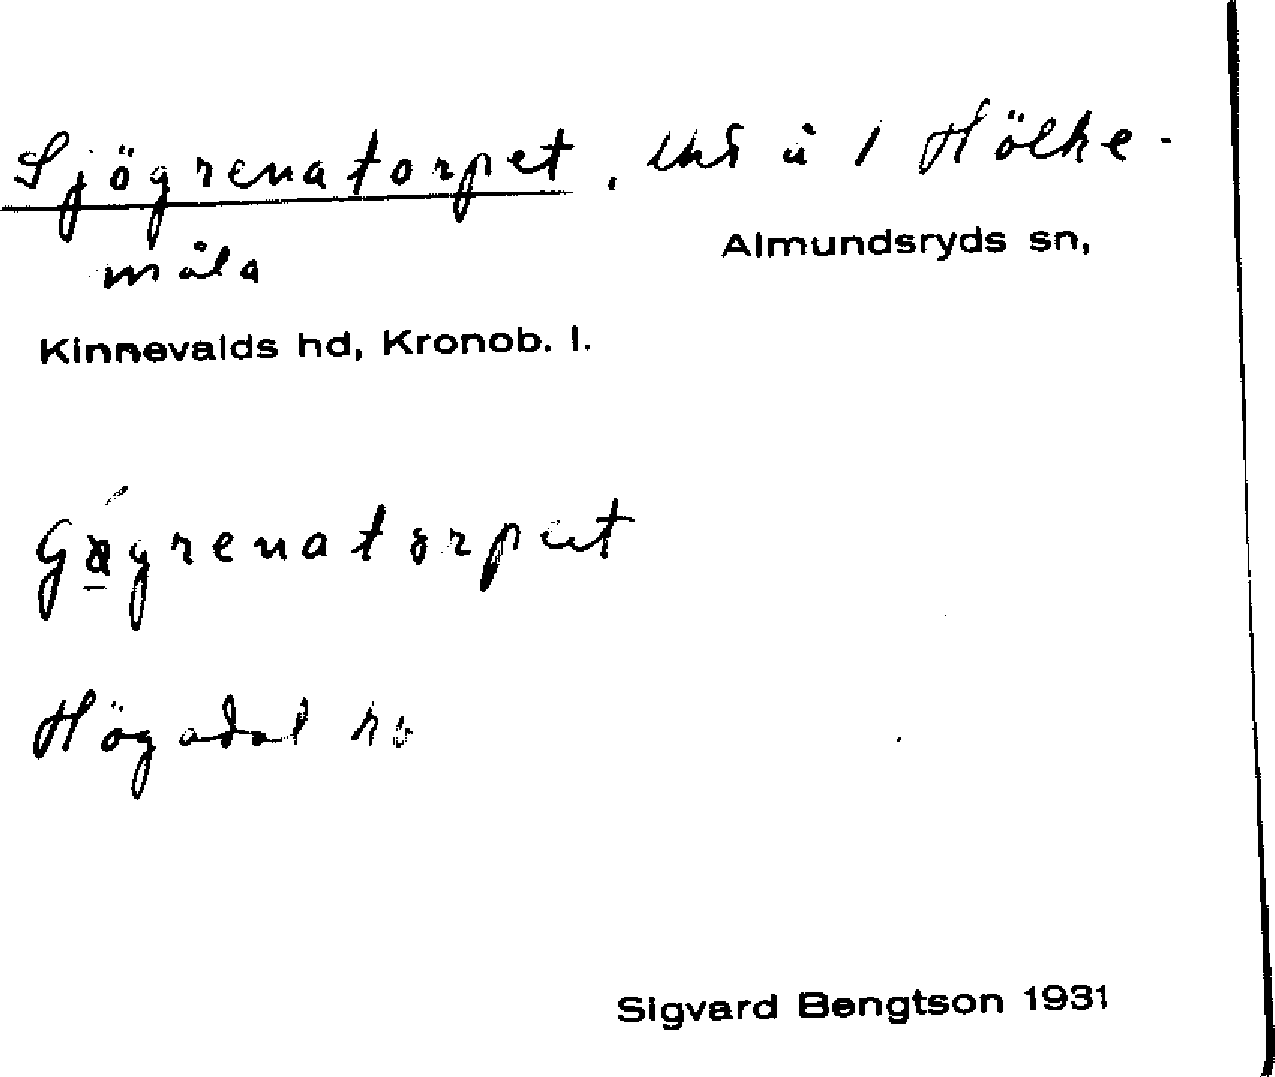 Sjögrenatorpet, lht å 1 Hölke-
måla
Almundsryds sn,
Kinnevalds hd, Kronob. l.
Högadal
Sigvard Bengtson 1931